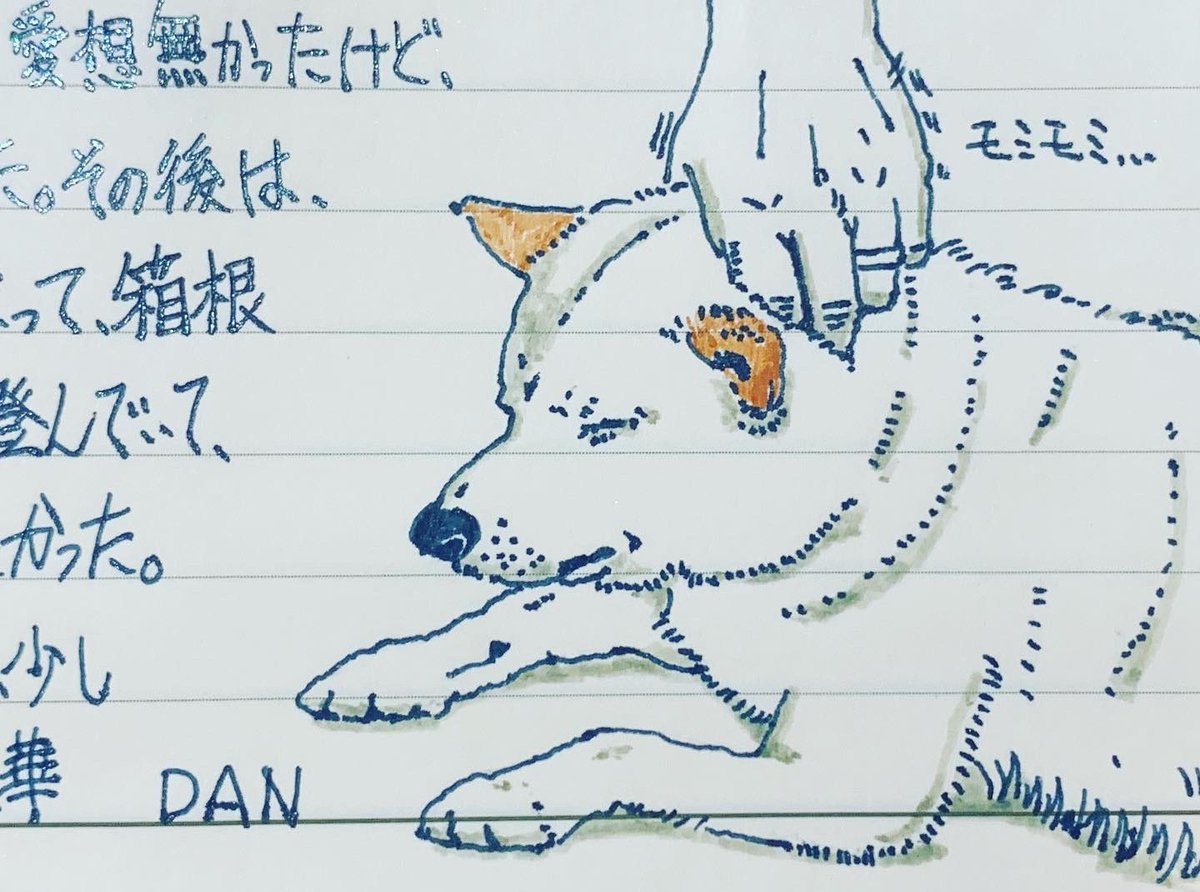 愛想無かったけど、
た。その後は、
って、箱根
澄んでいて、
かった。
少し
華 DAN
モミモミ...